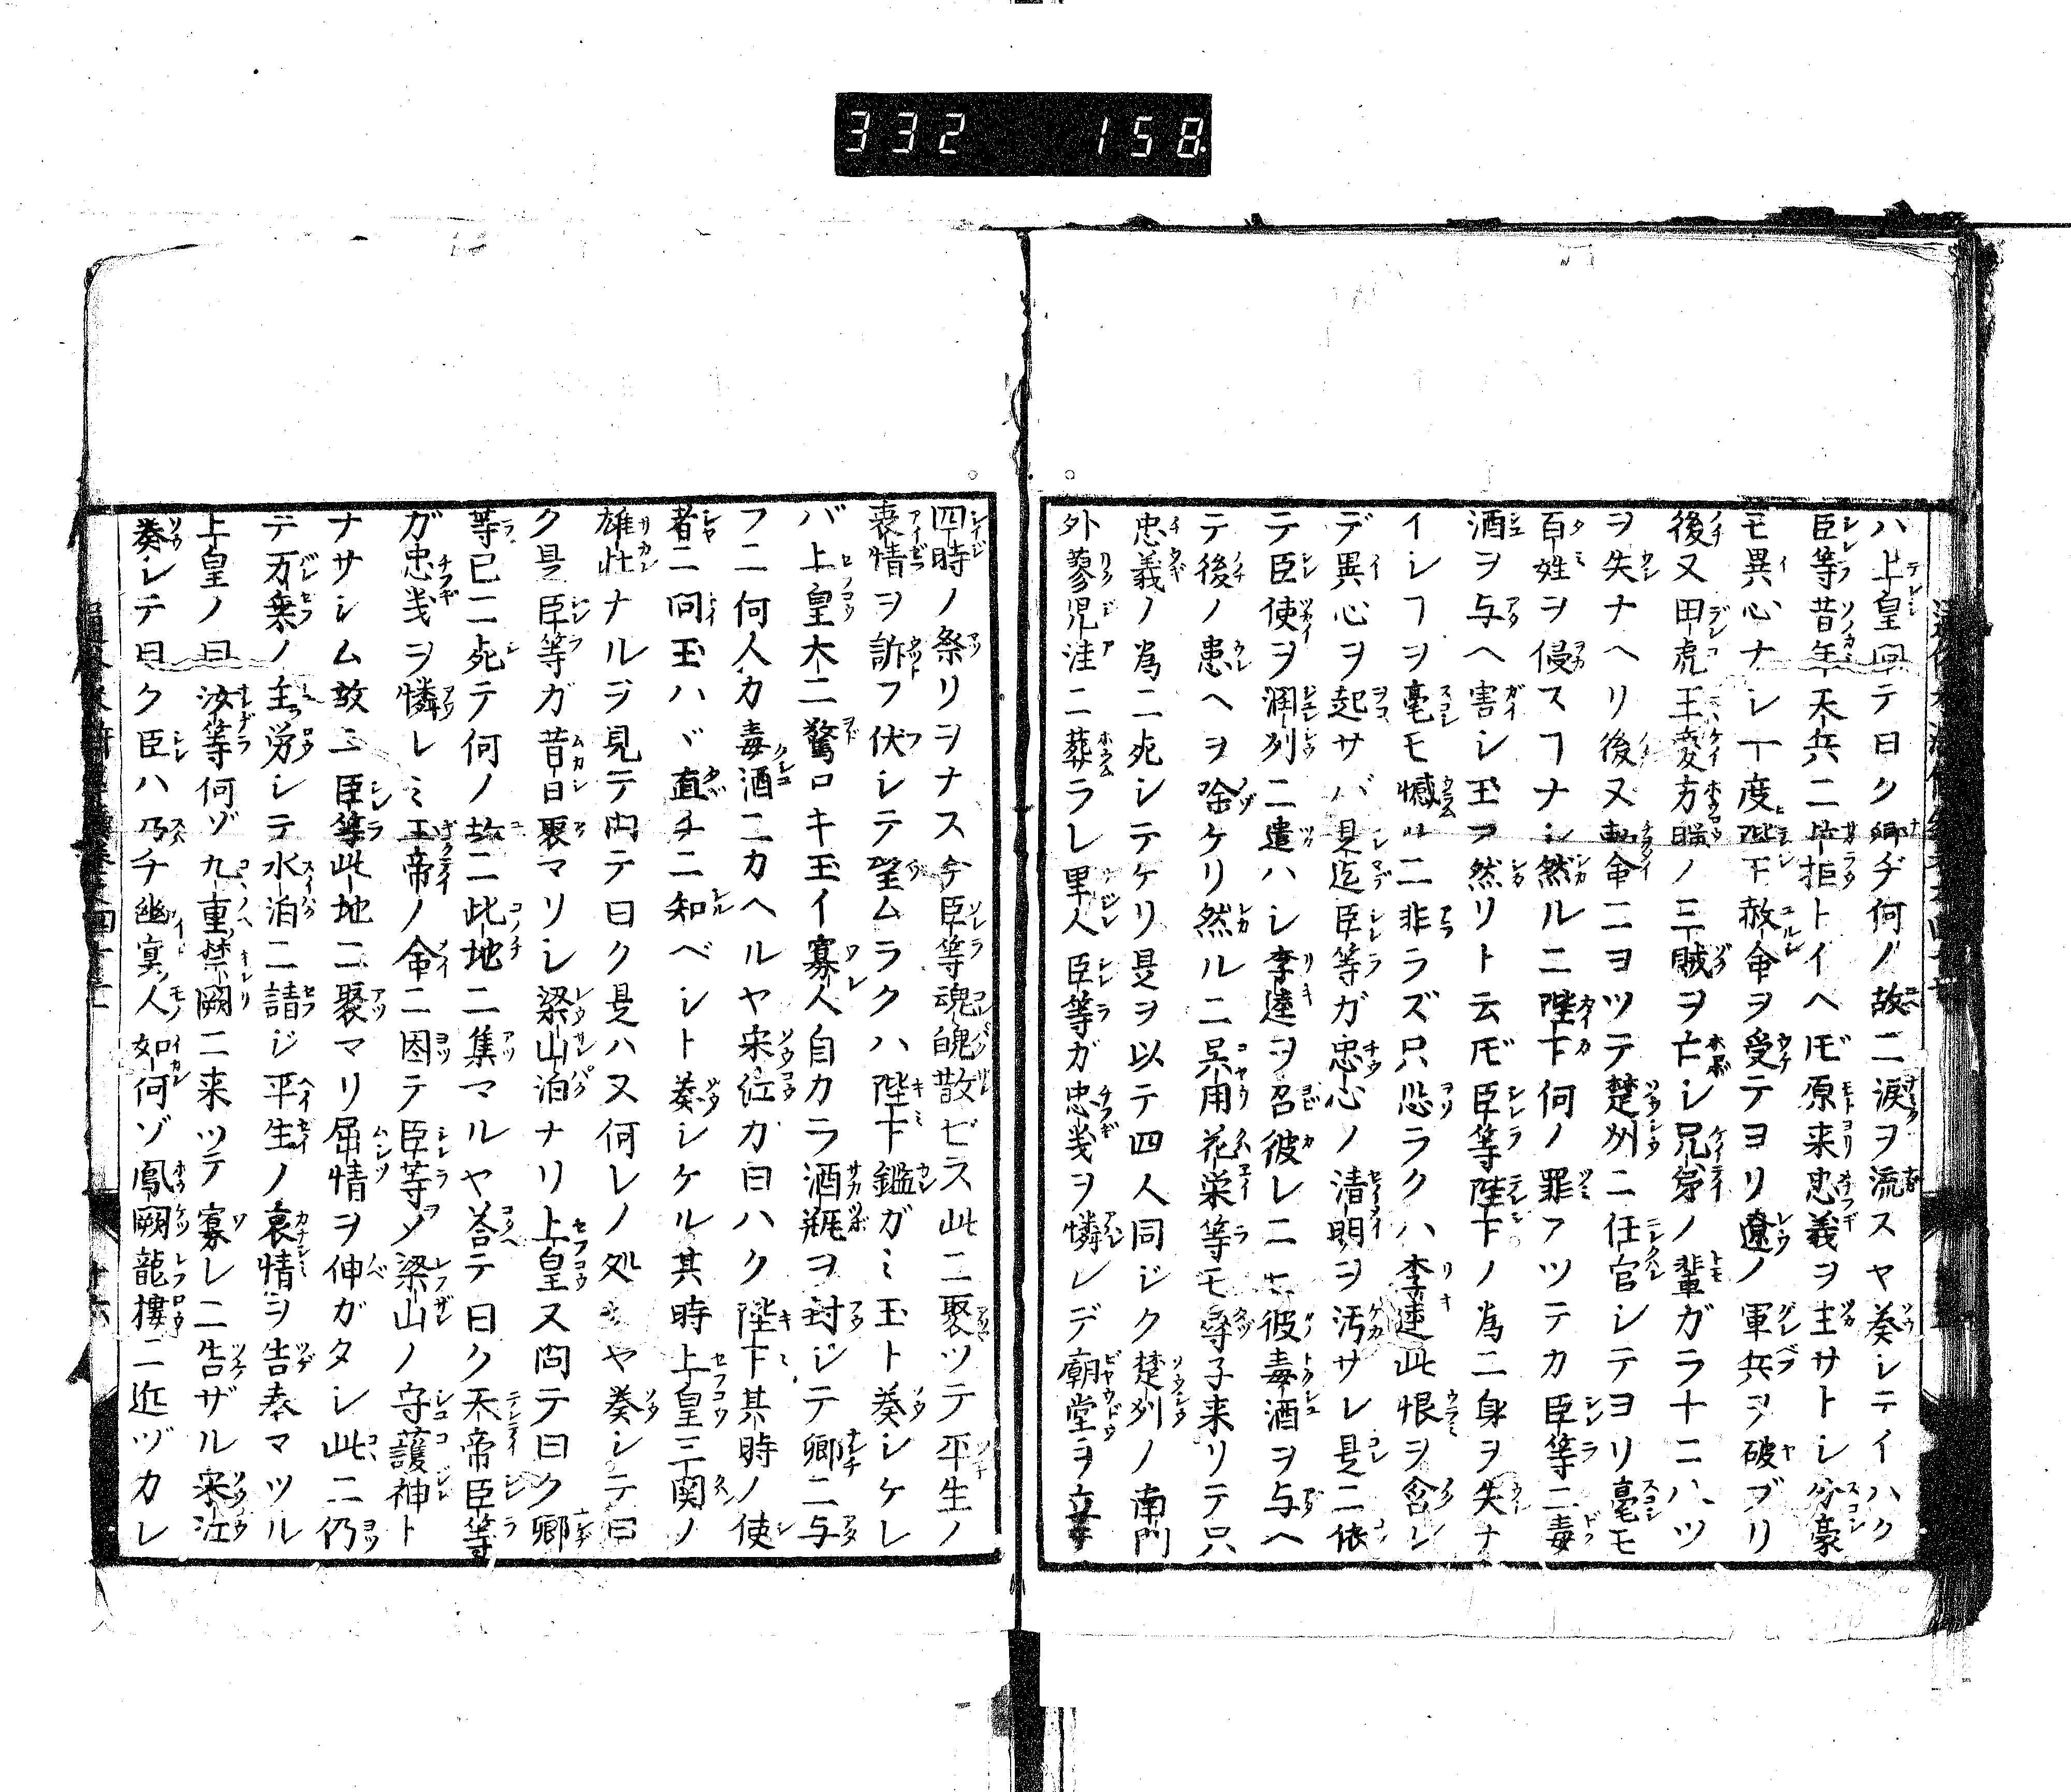 332 158
ハ上皇問テ曰ク卿ヂ何ノ故ニ涙ヲ流スヤ奏シテイハク
臣等昔年天兵ニ片拒トイヘ𪜈原来忠義ヲ主サトシ分豪
モ異心ナシ一度陛下赦命ヲ受テヨリ遼ノ軍兵ヲ破ブリ
後又田虎王慶方臘ノ三賊ヲ亡シ兄弟ノ輩ガラ十ニハツ
ヲ失ナヘリ後又勅命ニヨツテ楚州ニ任官シテヨリ毫モ
百姓ヲ侵スヿナシ然ルニ陛下何ノ罪アツテカ臣等ニ毒
酒ヲ与ヘ害シ玉ヲ然リト云𪜈臣等陛下ノ為ニ身ヲ失ナ
イシヿヲ毫モ憾ルニ非ラズ只恐ラクハ李逵此恨ヲ含ン
デ異心ヲ起サバ是迄臣等ガ忠心ノ清明ヲ汚サレ是ニ依
テ臣使ヲ潤列ニ遣ハシ李逵ヲ召彼レニモ彼毒酒ヲ与ヘ
テ後ノ患ヘヲ除ケリ然ルニ呉用花栄等モ尋子来リテ只
忠義ノ為ニ死シテケリ是ヲ以テ四人同ジク楚列ノ南門
外蓼児洼ニ葬ラレ里人臣等ガ忠義ヲ憐レデ廟堂ヲ立
四時ノ祭リヲナス今臣等魂魄散ゼス此ニ聚ツテ平生ノ
衷情ヲ訴フ伏シテ望ムラクハ陛下鑑ガミ玉ト奏シケレ
バ上皇大ニ驚ロキ玉イ寡人自カラ酒瓶ヲ封ジテ卿ニ与
フニ何人カ毒酒ニカヘルヤ宋江カ曰ハク陛下其時ノ使
者ニ問玉ハヾ直チニ知ベシト奏シケル其時上皇三関ノ
雄壮ナルヲ見テ問テ曰ク是ハ又何レノ処ニヤ奏シテ曰
ク是臣等ガ昔日聚マリシ梁山泊ナリ上皇又問テ曰ク卿
等已ニ死テ何ノ故ニ此地ニ集マルヤ荅テ曰ク天帝臣等
ガ忠義ヲ憐レミ玉帝ノ命ニ因テ臣等ヲ梁山ノ守護神ト
ナサシム故ニ臣等此地ニ聚マリ屈情ヲ伸ガタシ此ニ仍
テ万乗ノ主労シテ水泊ニ請ジ平生ノ衷情ヲ告奉マツル
上皇ノ曰汝等何ゾ九重禁闕ニ来ツテ寡レニ告ザル宋江
奏シテ曰ク臣ハ乃チ幽冥人如何ゾ鳳闕龍樓ニ近ヅカレ